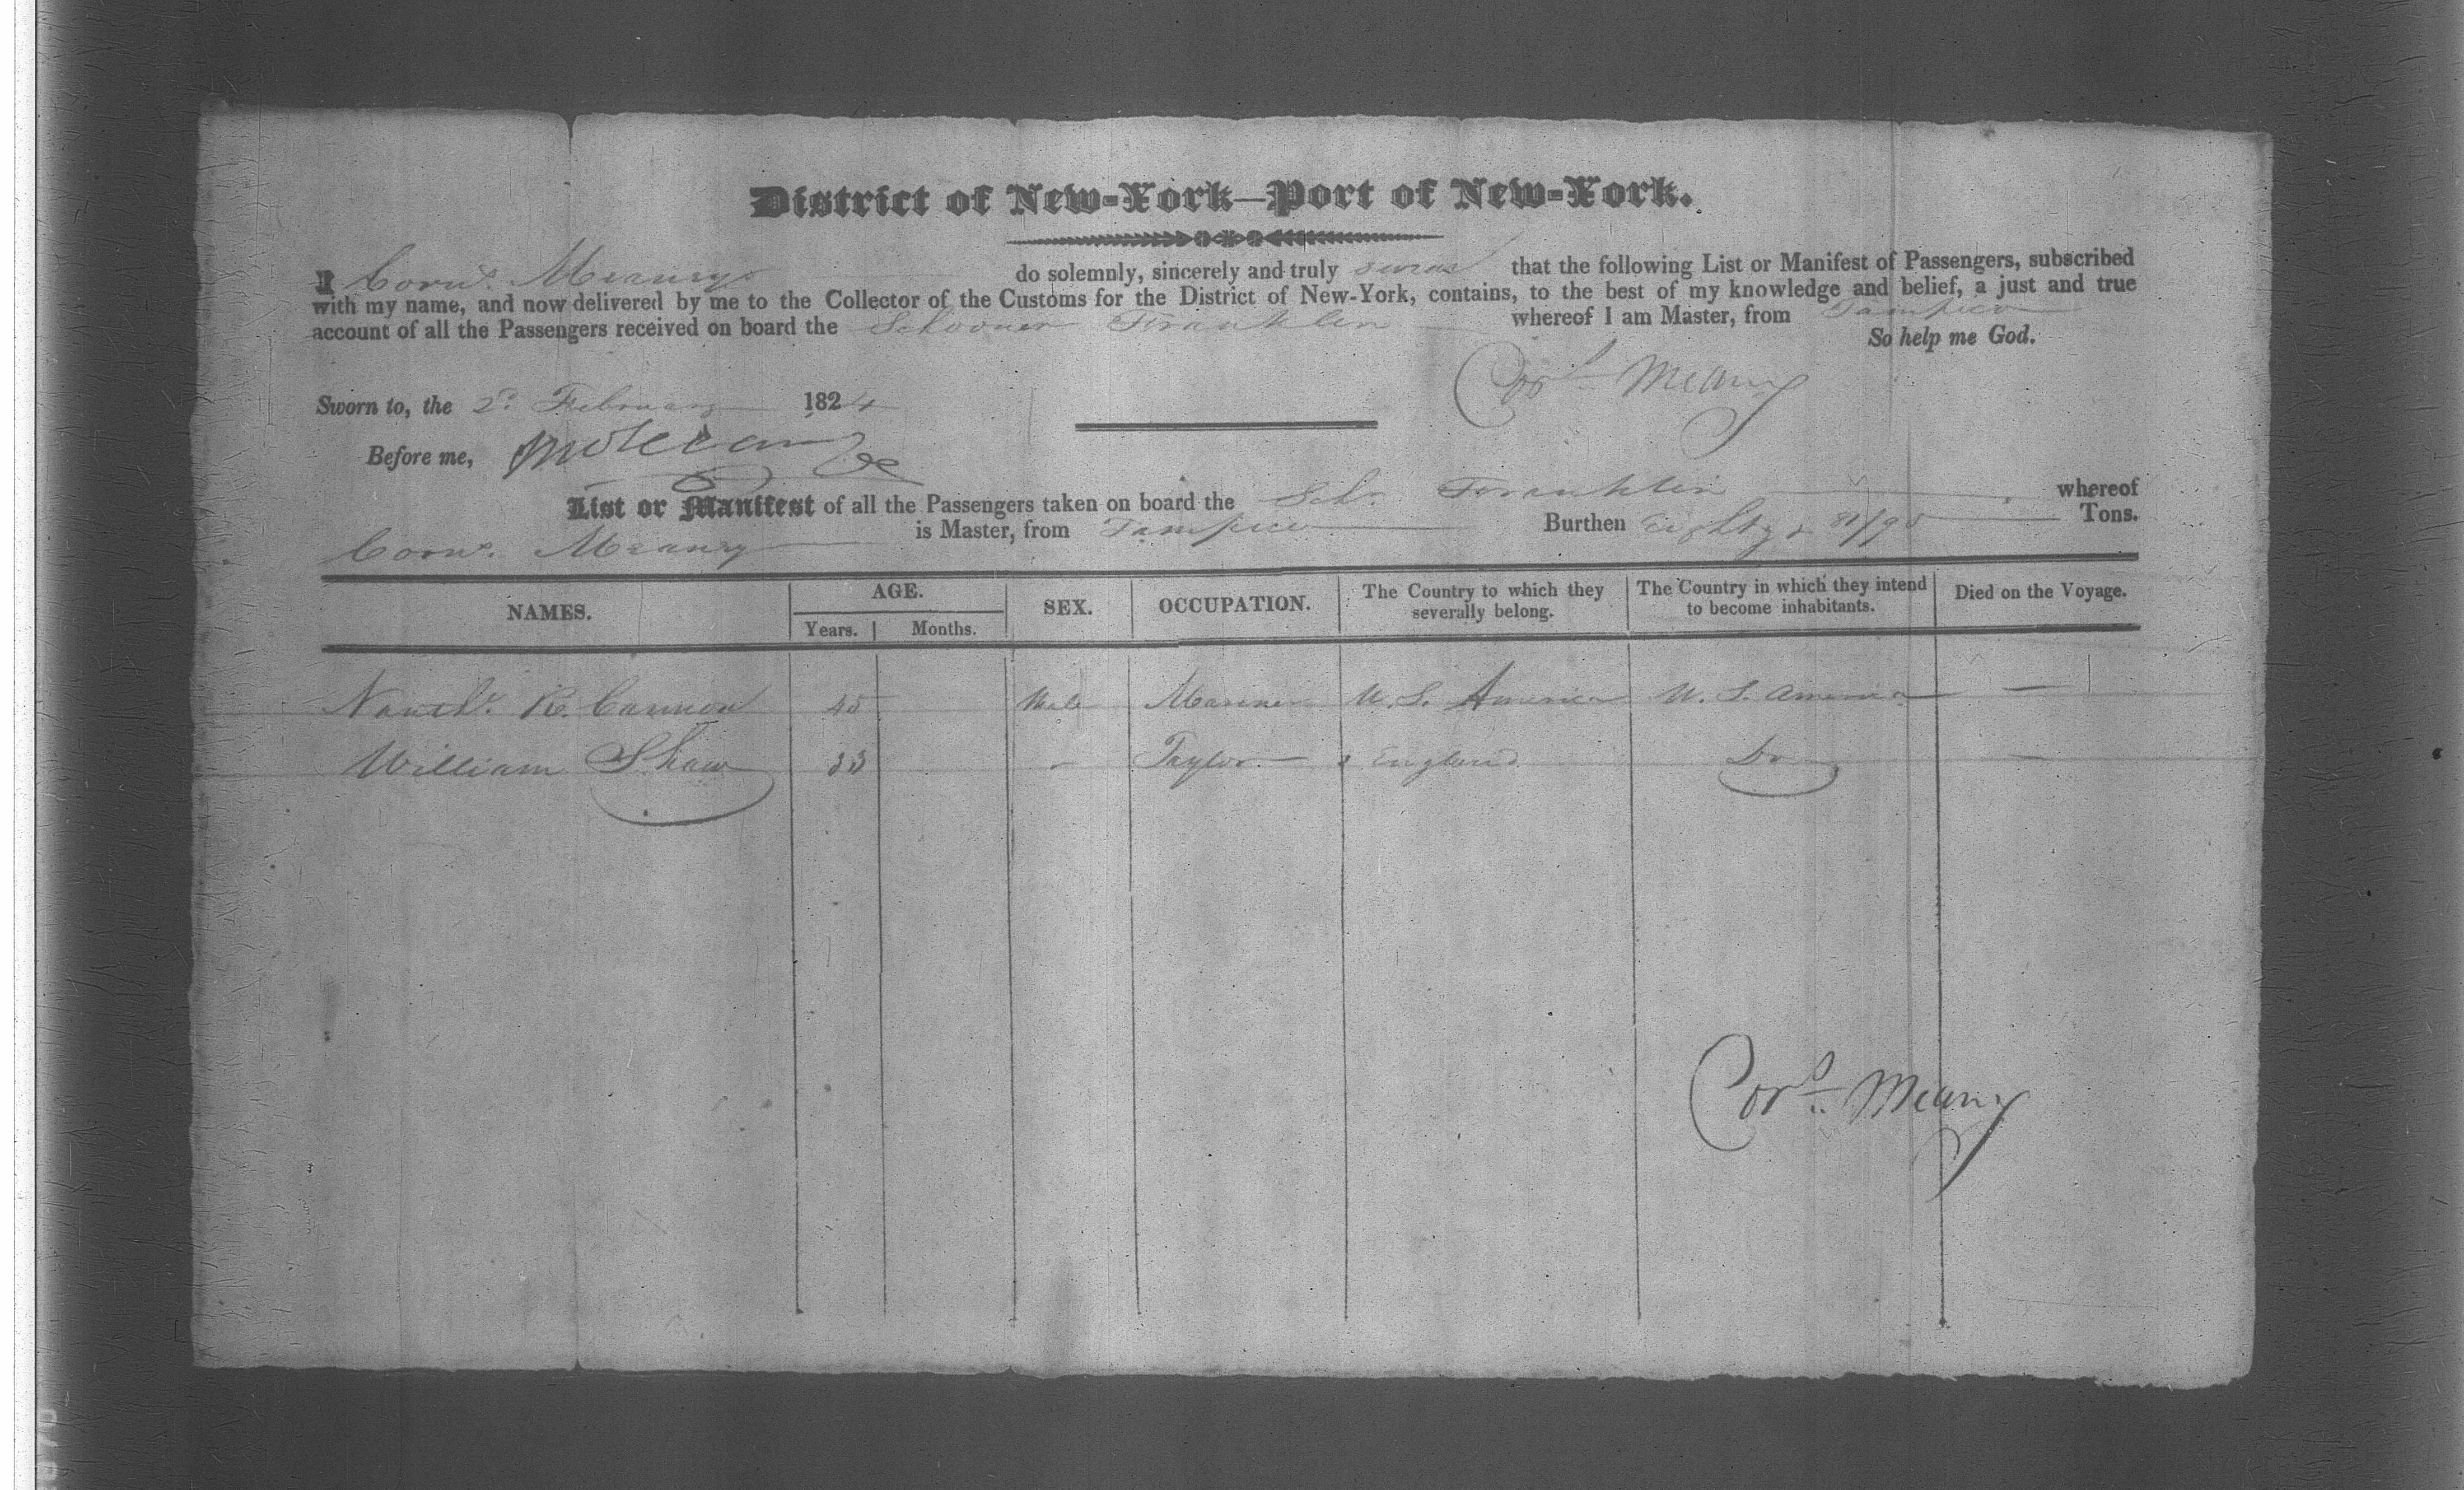 District of New-York—Port of New-York.
I Corns. Meany do solemnly, sincerely and truly swear that the following List or Manifest of Passengers, subscribed
with my name, and now delivered by me to the Collector of the Customs for the District of New-York, contains, to the best of my knowledge and belief, a just and true
account of all the Passengers received on board the Schooner Franklin whereof I am Master, from Tampico
So help me God.
Cors. Meany
Sworn to, the 2d. February 1824
Before me,
List or Manifest of all the Passengers taken on board the Schr. Franklin whereof
Corns. Meany is Master, from Tampico Burthen Eighty & /95 Tons.
NAMES. AGE. SEX. OCCUPATION. The Country to which they severally belong. The Country in which they intend to become inhabitants. Died on the Voyage.
Years. Months.
R. Cannon 45 Male Mariner U. S. America U. S. America —
William Shaw 33 - Taylor — England Do —
Cors. Meany